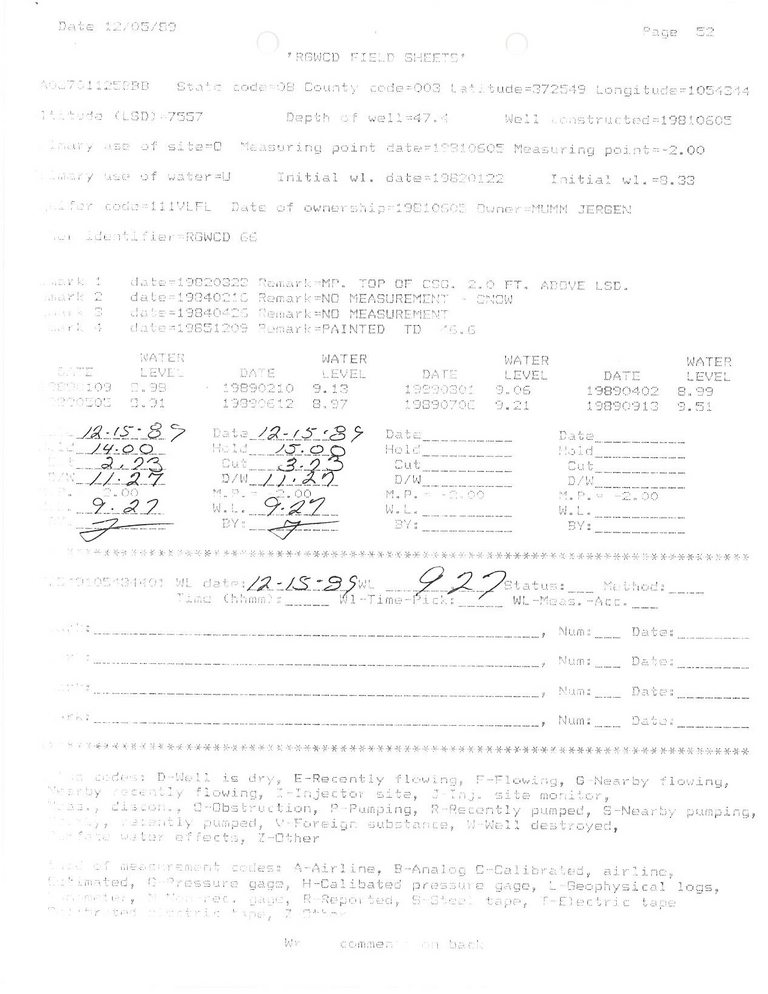 Date 12/05/89 Page 52
'RGWCD FIELD SHEETS'
State code=08 County code=003 Latitude=372549 Longitude=1054344
ltitude (LSD)=7557 Depth of well=47.4 Well constructed=19810605
imary use of site=O Measuring point date=19810605 Measuring point=-2.00
imary use of water=U Initial wl. date=19820122 Initial wl.=8.33
uifer code=111VLFL Date of ownership=19810605 Owner=MUMM JERGEN
her identifier=RGWCD 66
mark 1 date=19820323 Remark=MP. TOP OF CSG. 2.0 FT. ABOVE LSD.
mark 2 date=19840216 Remark=NO MEASUREMENT - SNOW
mark 3 date=19840426 Remark=NO MEASUREMENT
mark 4 date=19851209 Remark=PAINTED TD 46.6
WATER WATER WATER WATER
DATE LEVEL DATE LEVEL DATE LEVEL DATE LEVEL
8.98 19890210 9.13 19890301 9.06 19890402 8.99
8.91 19890612 8.97 19890706 9.21 19890913 9.51
12-15-89 Date 12-15-89 Date Date
14.00 Hold 15.00 Hold Hold
2.73 Cut 3.73 Cut Cut
D/W 11.27 D/W 11.27 D/W D/W
P. -2.00 M.P.= -2.00 M.P.= -2.00 M.P.= -2.00
9.27 W.L. 9.27 W.L. W.L.
J BY: J BY: BY:
*****************************************************************
105434401 WL date: 12-15-89 WL 927 Status: Method:
Time (hhmm): Wl-Time-Pick: WL-Meas.-Acc.
, Num: Date:
, Num: Date:
, Num: Date:
rk: , Num: Date:
*****************************************************************
codes: D-Well is dry, E-Recently flowing, F-Flowing, G-Nearby flowing,
Nearby recently flowing, I-Injector site, J-Inj. site monitor,
Meas., discon., O-Obstruction, P-Pumping, R-Recently pumped, S-Nearby pumping,
recently pumped, V-Foreign substance, W-Well destroyed,
urface water effects, Z-Other
of measurement codes: A-Airline, B-Analog C-Calibrated, airline,
Estimated, G-Pressure gage, H-Calibated pressure gage, L-Geophysical logs,
Manometer, N-Non-rec. gage, R-Reported, S-Steel tape, T-Electric tape
Calibrated electric tape, Z-Other
Wr commen on back